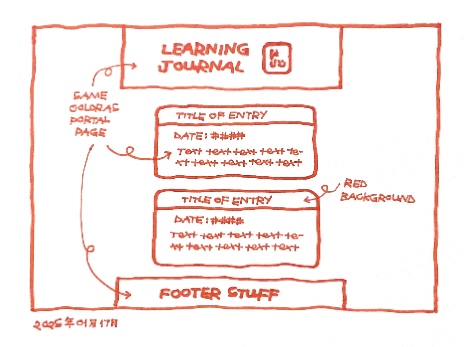 LEARNING
JOURNAL
SAME
COLOR AS
PORTAL
PAGE
TITLE OF ENTRY
DATE: ####
Text text text text te-
xt text text text text
TITLE OF ENTRY
RED
BACKGROUND
DATE: ####
Text text text text te-
xt text text text text
FOOTER STUFF
2025年01月17日